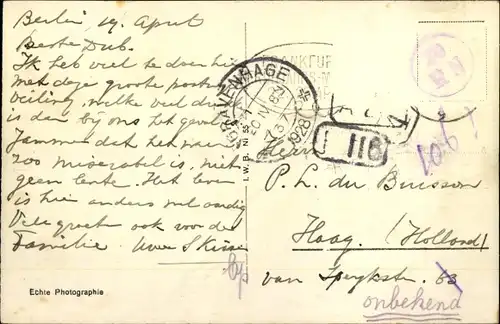 Berlin, 19 April
Beste Dub.
Ik heb veel te doen hier
met deze groote post
veiling, welke veel
is dan bij ons het geval
Jammer dat het weer
zoo miserabel is, niet
geen lente. Het leven
is hier anders wel aardig
Vele groeten ook voor de
Familie. Uwe
'S GRAVENHAGE
20 IV
1928
118
106
Herrn
P. L. du Buisson
Haag. (Holland)
van Speykstr. 63
onbekend
I. W. B. Nr. 55
Echte Photographie